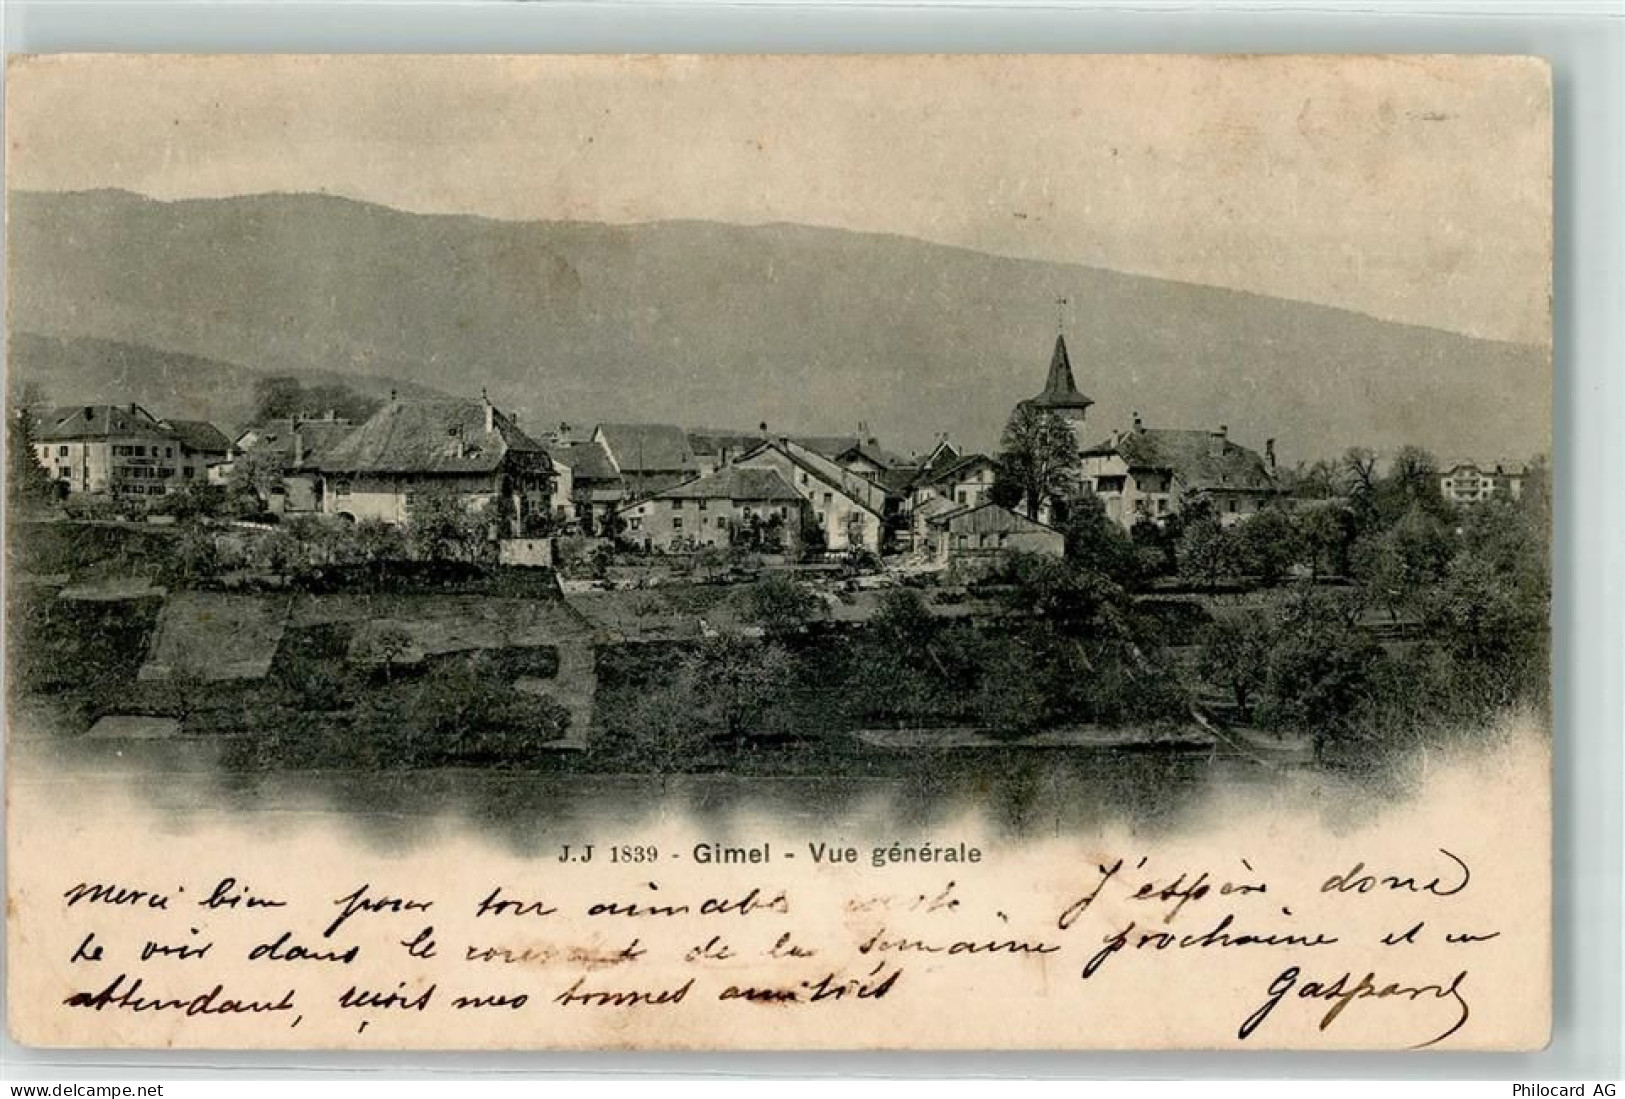 J.J 1839 - Gimel - Vue générale
Merci bien pour ton aimable carte. J'espère donc
te voir dans le courant de la semaine prochaine et en
attendant, reçois mes bonnes amitiés
Gaspard
www.delcampe.net
Philocard AG